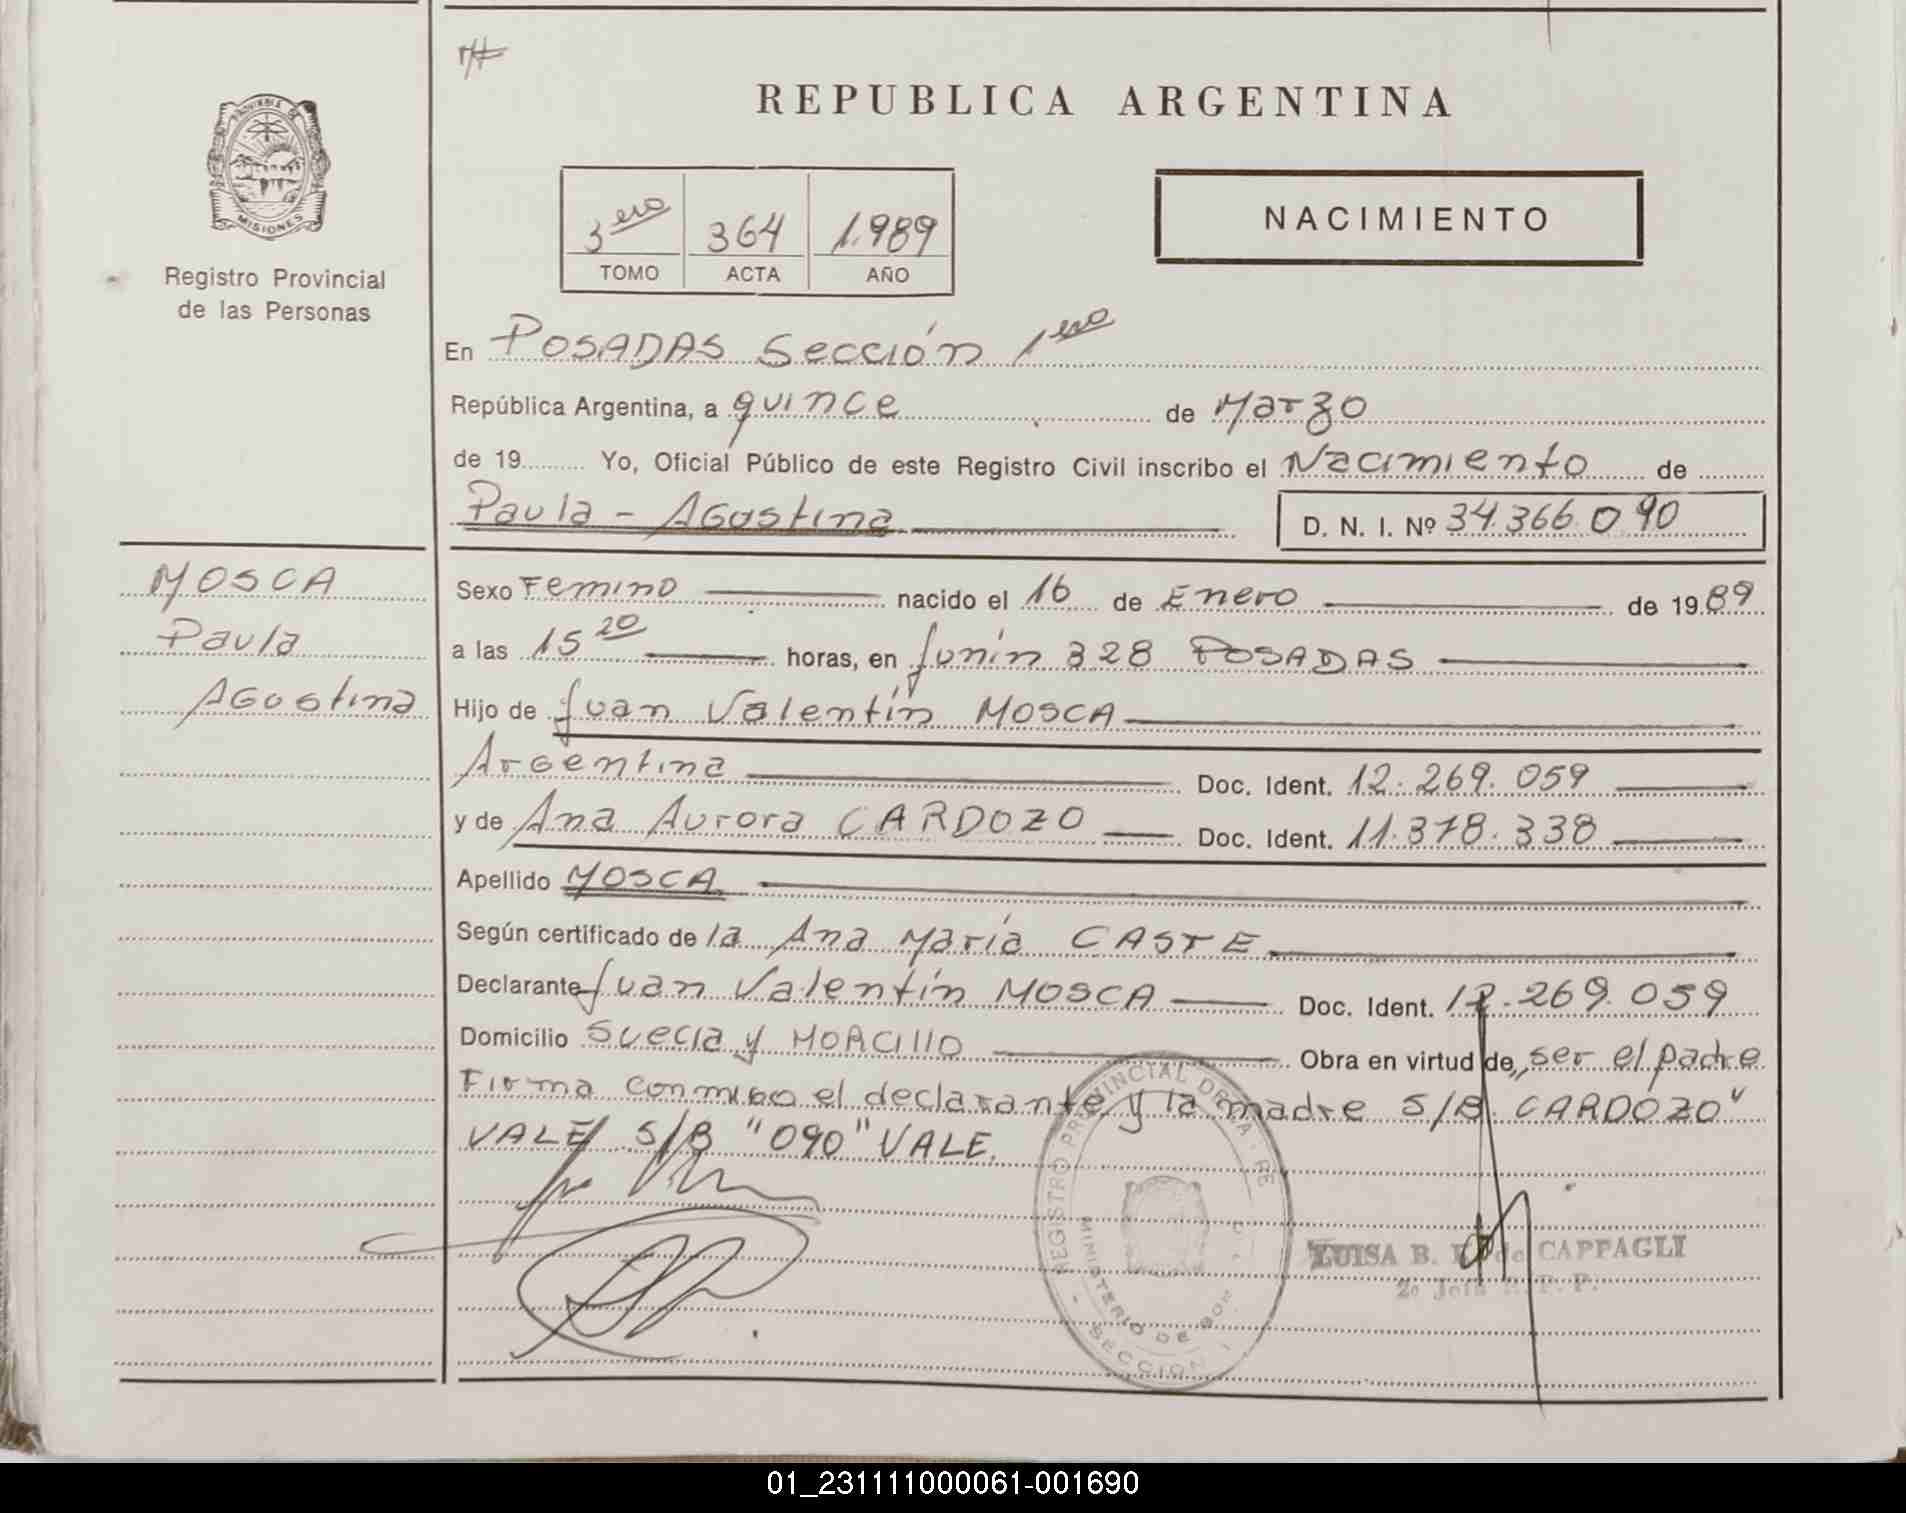 REPUBLICA ARGENTINA
PROVINCIA DE
MISIONES
Registro Provincial
de las Personas
3ero 364 1.989
TOMO ACTA AÑO
NACIMIENTO
En POSADAS Sección 1era
República Argentina, a quince de Marzo
de 19 Yo, Oficial Público de este Registro Civil inscribo el Nacimiento de
Paula - Agostina D. N. I. Nº 34.366.090
MOSCA
Paula
Agostina
Sexo Femino nacido el 16 de Enero de 1989
a las 15 20 horas, en Junín 328 POSADAS
Hijo de Juan Valentín MOSCA
Argentina Doc. Ident. 12.269.059
y de Ana Aurora CARDOZO Doc. Ident. 11.378.338
Apellido MOSCA
Según certificado de la Ana María CASTE
Declarante Juan Valentín MOSCA Doc. Ident. 12.269.059
Domicilio Suecia y MORCIllO Obra en virtud de, ser el padre
Firma conmigo el declarante y la madre S/B. CARDOZO"
VALE S/B "090" VALE.
REGISTRO PROVINCIAL DE
MINISTERIO DE GOB
SECCION 1
LUISA B. de CAPPAGLI
2º Jefe R. P. P.
01_231111000061-001690